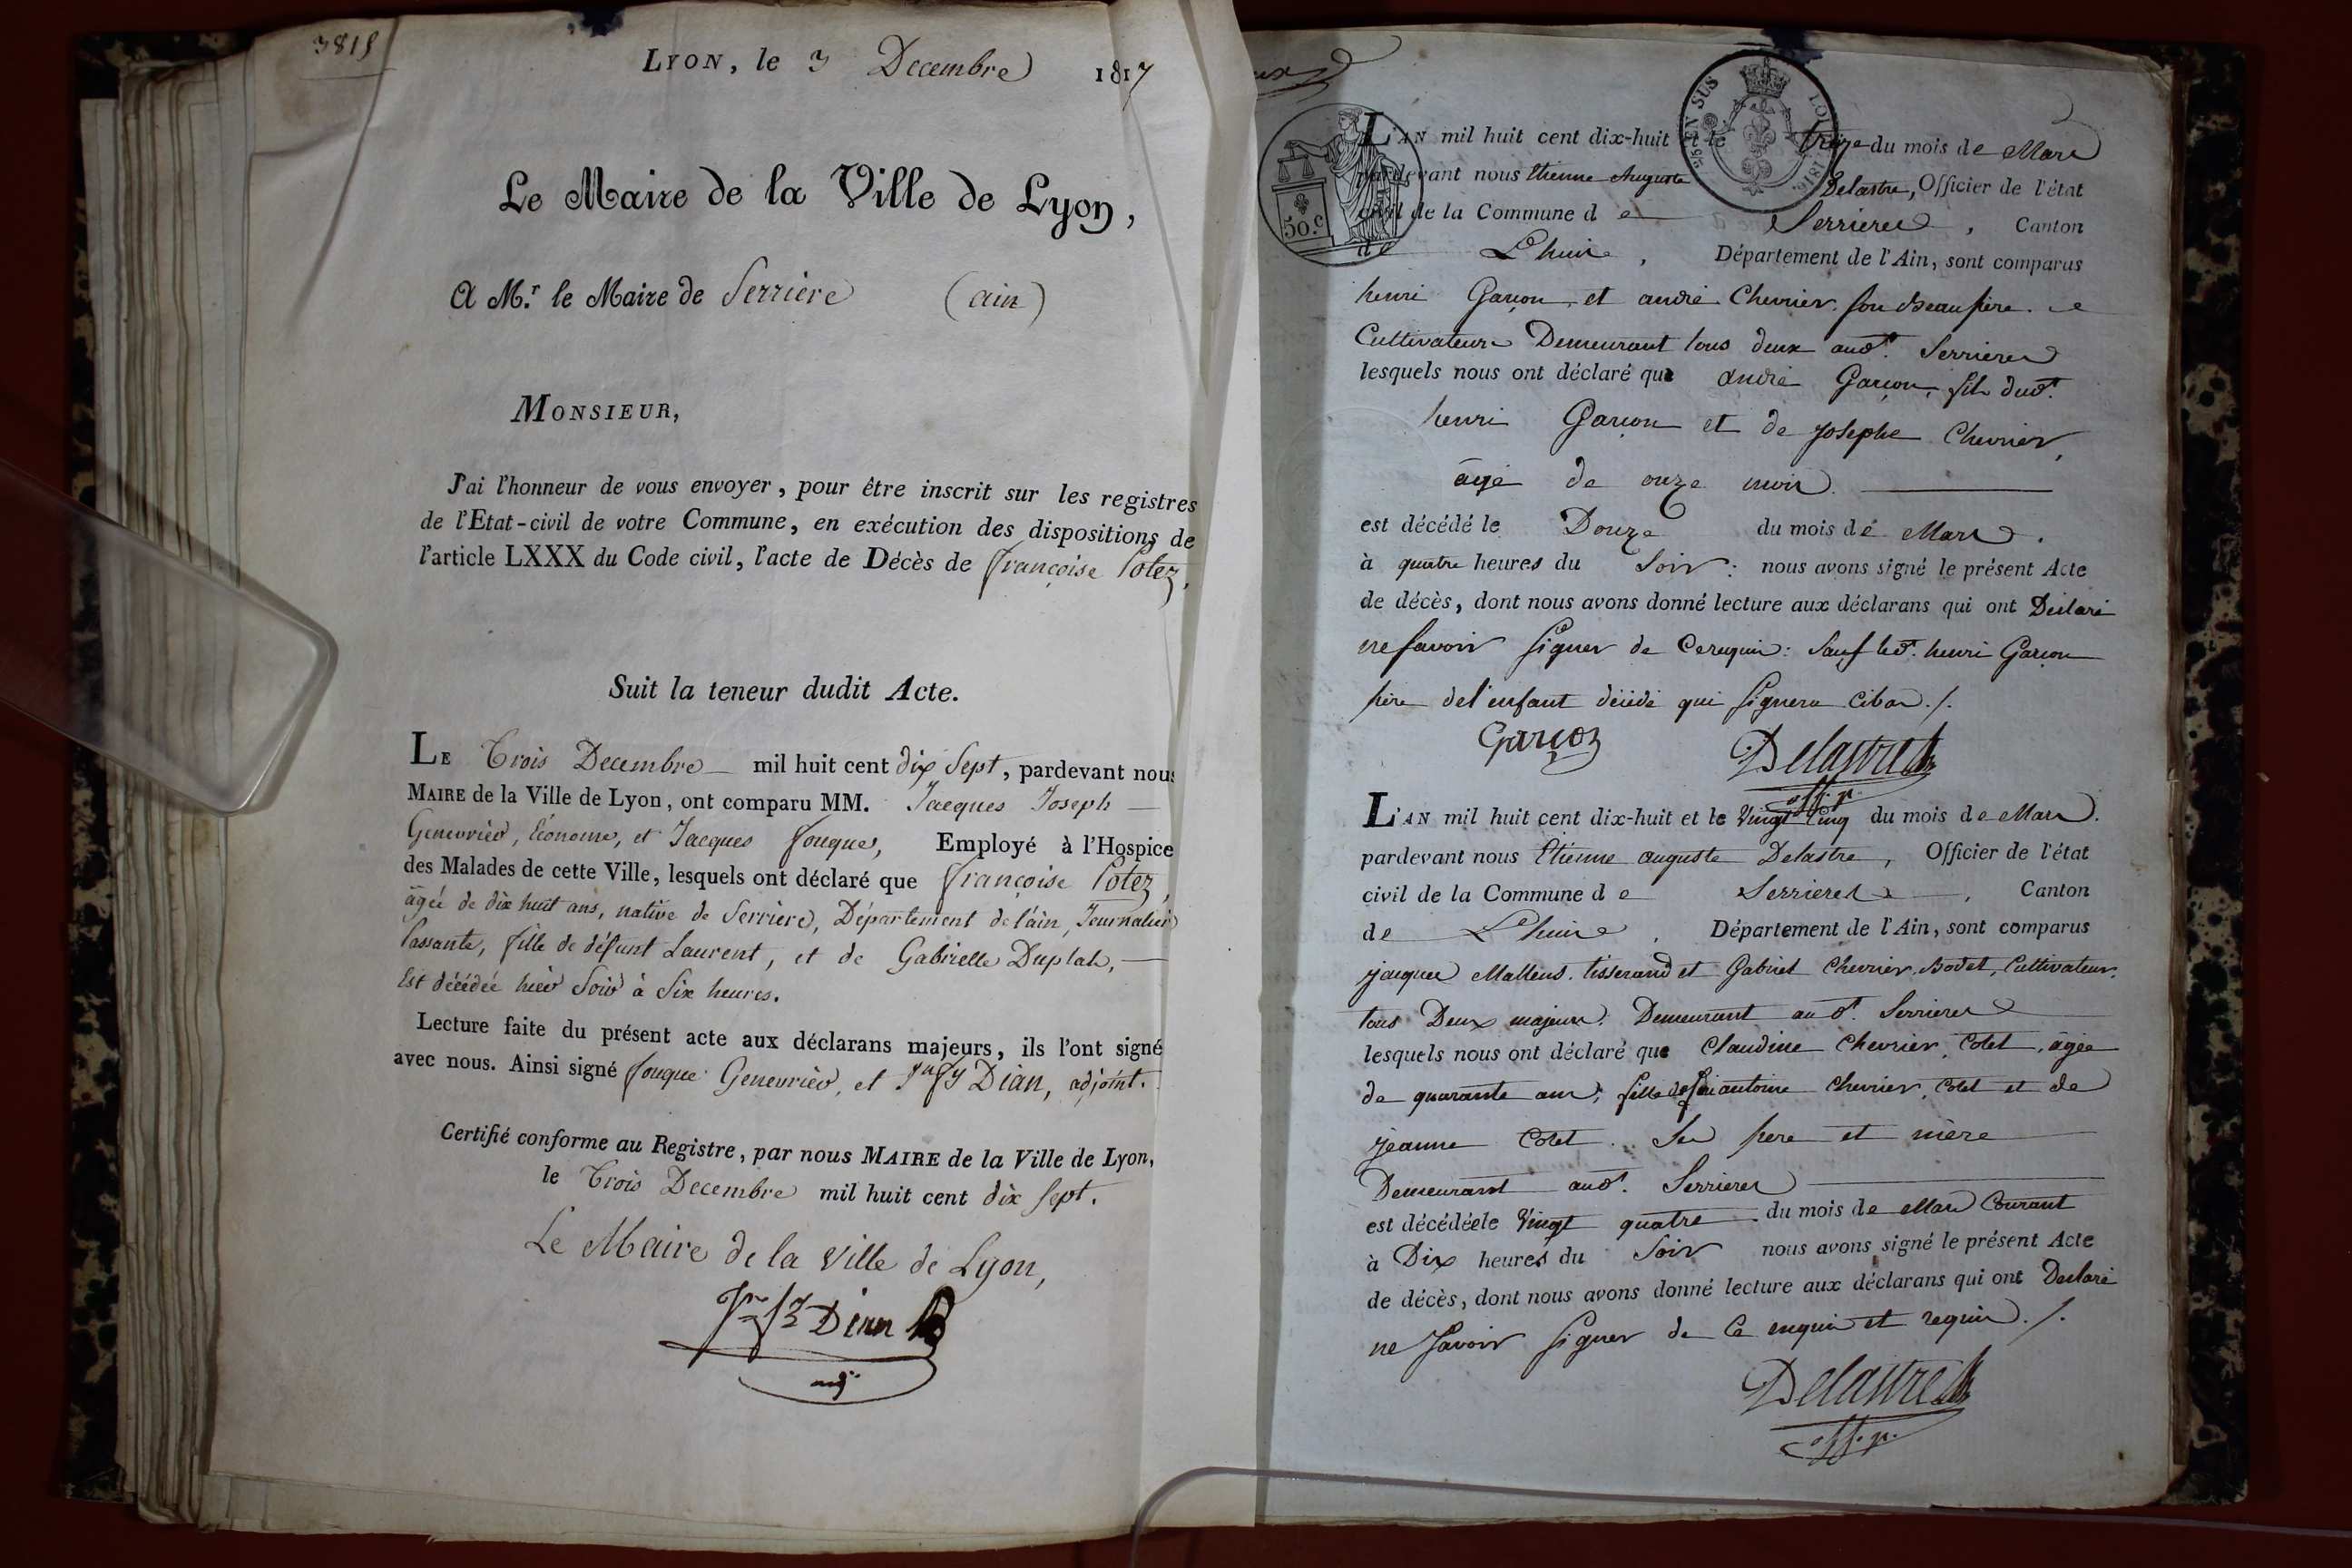 3815
LYON, le 3 Decembre 1817
Le Maire de la Ville de Lyon,
A M.r le Maire de Serriere (ain)
MONSIEUR,
J'ai l'honneur de vous envoyer, pour être inscrit sur les registres
de l'Etat-civil de votre Commune, en exécution des dispositions de
l'article LXXX du Code civil, l'acte de Décès de françoise Cotez,
Suit la teneur dudit Acte.
LE Trois Decembre mil huit cent dix Sept, pardevant nous
MAIRE de la Ville de Lyon, ont comparu MM. Jacques Joseph
Genevrier, Econome, et Jacques fouque, Employé à l'Hospice
des Malades de cette Ville, lesquels ont déclaré que françoise Cotez,
âgée de dix huit ans, native de Serriere, Département de l'ain, Journalier
Passante, fille de défunt Laurent, et de Gabrielle Duplat,
Est décédée hier Soir à Six heures.
Lecture faite du présent acte aux déclarans majeurs, ils l'ont signé
avec nous. Ainsi signé fouque Genevrier, et Dian, adjoint.
Certifié conforme au Registre, par nous MAIRE de la Ville de Lyon,
le Trois Decembre mil huit cent dix sept.
Le Maire de la Ville de Lyon,
Dian
adj.
50.c
25 EN SUS LOI 1816
L'AN mil huit cent dix-huit et le treize du mois de Mars
pardevant nous Etienne Auguste Delastre, Officier de l'état
civil de la Commune de Serrieres, Canton
de Lhuis, Département de l'Ain, sont comparus
henri Garçon, et andré Chevrier son beau père
Cultivateurs Demeurant tous deux aud.t Serrieres
lesquels nous ont déclaré que andré Garçon, fils dud.t
henri Garçon et de josephe Chevrier,
âgé de onze mois.
est décédé le Douze du mois de Mars.
à quatre heures du Soir: nous avons signé le présent Acte
de décès, dont nous avons donné lecture aux déclarans qui ont Déclaré
ne savoir signer de ce requis: Sauf led.t henri Garçon
père de l'enfant décédé qui signera cibas./.
Garçon Delastre
off. p.
L'AN mil huit cent dix-huit et le Vingt Cinq du mois de Mars.
pardevant nous Etienne auguste Delastre, Officier de l'état
civil de la Commune de Serrieres, Canton
de Lhuis, Département de l'Ain, sont comparus
jacques Mallens, tisserand et Gabriel Chevrier Bodet, Cultivateur,
tous Deux majeurs. Demeurant aud.t Serrieres
lesquels nous ont déclaré que Claudine Chevrier, Cotet, âgée
de quarante ans, fille de feu antoine Chevrier, Cotet et de
jeanne Cotet. Ses père et mère
Demeurant aud.t Serrieres
est décédée le Vingt quatre du mois de Mars Courant
à Dix heures du Soir nous avons signé le présent Acte
de décès, dont nous avons donné lecture aux déclarans qui ont Declaré
ne savoir signer de ce enquis et requis./.
Delastre
off. p.